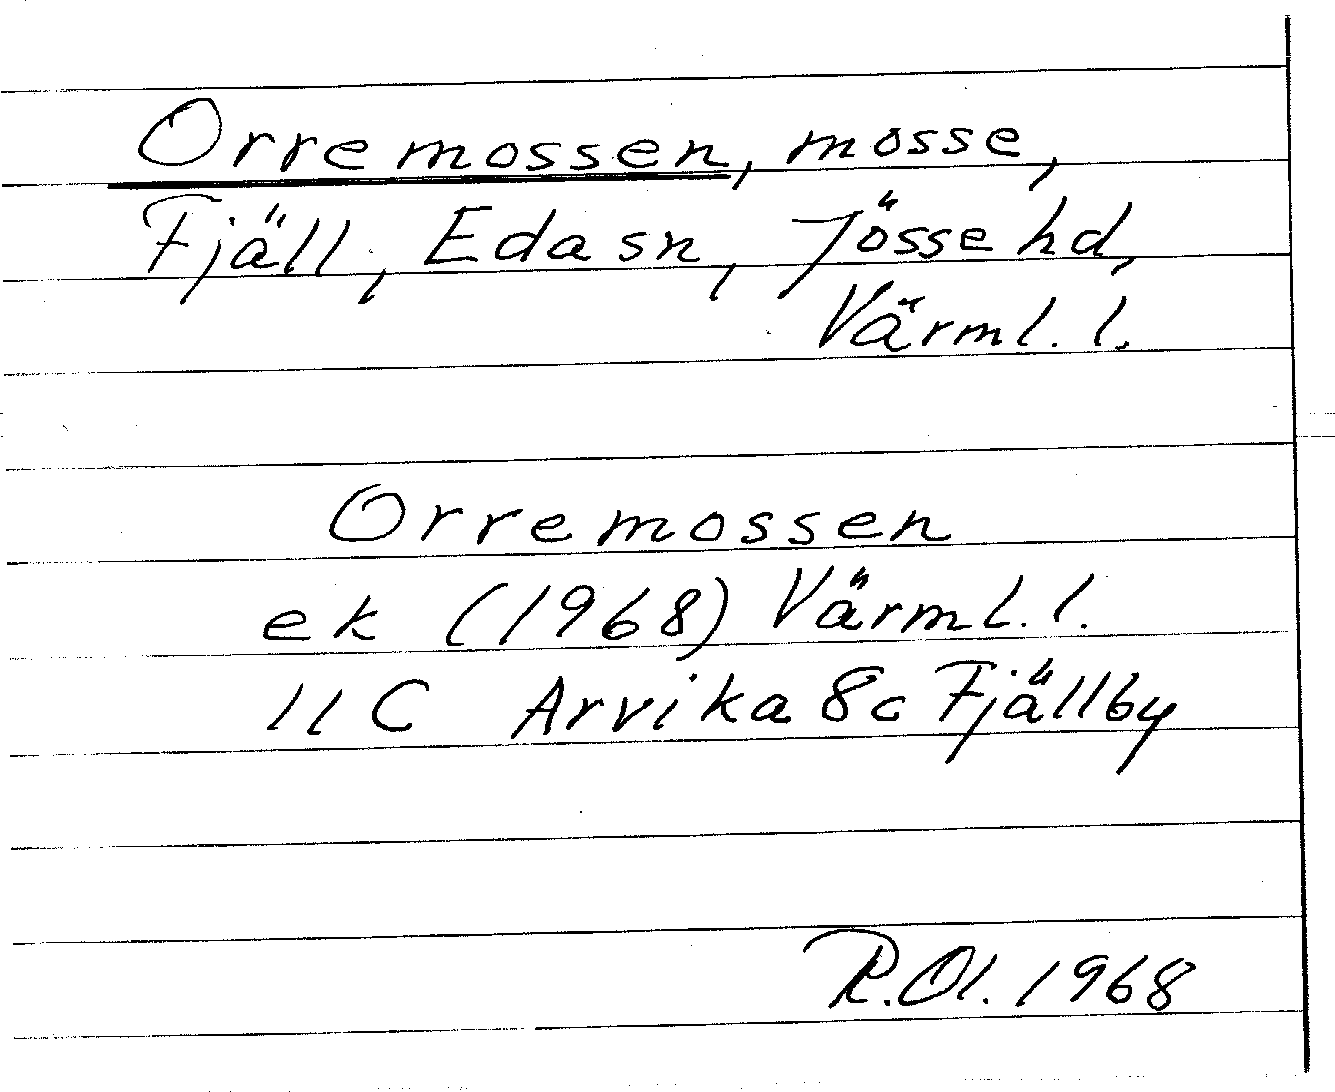 Orremossen, mosse,
Fjäll, Eda sn, Jösse hd,
Värml. l.
Orremossen
ek (1968) Värml. l.
11 C Arvika 8c Fjällby
R.Ol. 1968